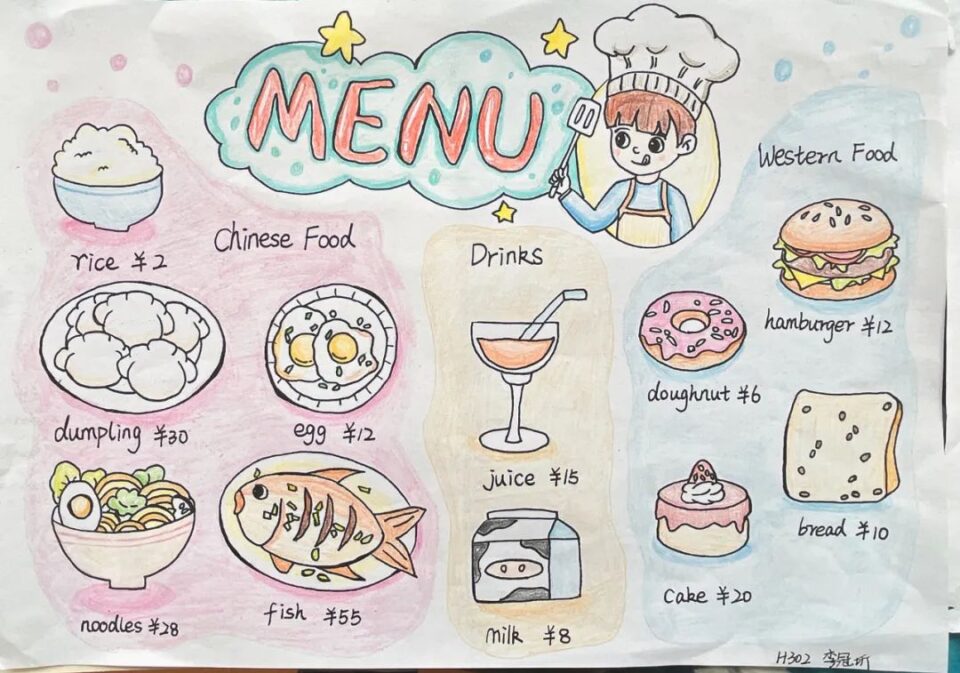 MENU
Chinese Food
rice ¥2
dumpling ¥30
egg ¥12
noodles ¥28
fish ¥55
Drinks
juice ¥15
milk ¥8
Western Food
hamburger ¥12
doughnut ¥6
bread ¥10
cake ¥20
H302 李冠昕